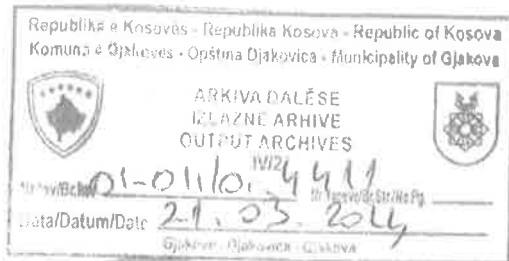 Republika e Kosovës - Republika Kosova - Republic of Kosova
Komuna e Gjakovës - Opština Djakovica - Municipality of Gjakova
ARKIVA DALËSE
IZLAZNE ARHIVE
OUTPUT ARCHIVES
IV/2
01-011/0.
Data/Datum/Date 21. 03. 2024
Gjakovë - Djakovica - Gjakova